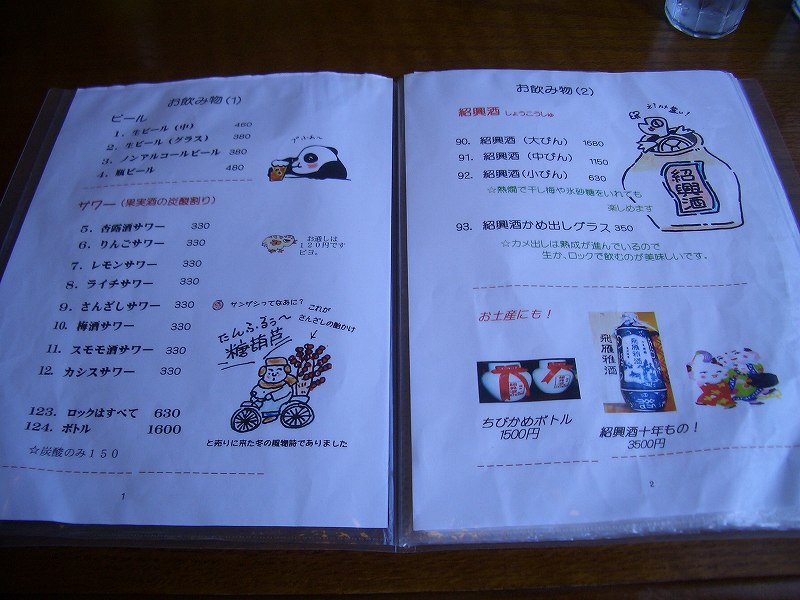 お飲み物(1)
ビール
1. 生ビール (中) 460
2. 生ビール (グラス) 380
3. ノンアルコールビール 380
4. 瓶ビール 480
プハぁ〜
サワー (果実酒の炭酸割り)
5. 杏露酒サワー 330
6. りんごサワー 330
7. レモンサワー 330
8. ライチサワー 330
9. さんざしサワー 330
10. 梅酒サワー 330
11. スモモ酒サワー 330
12. カシスサワー 330
お通しは
120円です
ピヨ。
サンザシってなあに?
これが
さんざしの飴かけ
たんふるぅ〜
糖葫芦
と売りに来た冬の風物詩でありました
123. ロックはすべて 630
124. ボトル 1600
☆炭酸のみ150
1
お飲み物(2)
紹興酒 しょうこうしゅ
90. 紹興酒 (大びん) 1680
91. 紹興酒 (中びん) 1150
92. 紹興酒 (小びん) 630
☆熱燗で干し梅や氷砂糖をいれても
楽しめます
紹興酒
93. 紹興酒かめ出しグラス 350
☆カメ出しは熟成が進んでいるので
生か、ロックで飲むのが美味しいです。
お土産にも!
飛雁雅酒
ちびかめボトル
1500円
紹興酒十年もの!
3500円
2